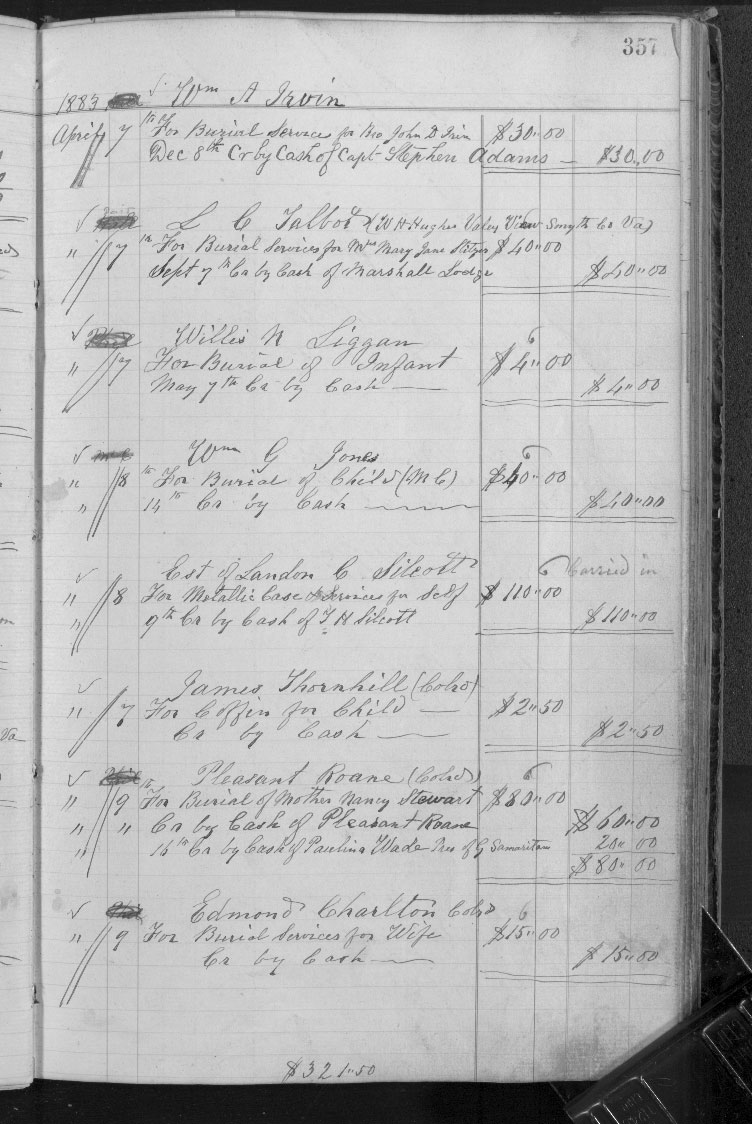 357
1883 ✓ Wm A Irvin
April 7th For Burial Service for Bro John D Irvin $30.00
Dec 8th Cr by Cash of Capt Stephen Adams — $30.00
✓ L C Talbot (W H Hughes Valley View Smyth Co Va)
" 7th For Burial Services for Mrs Mary Jane $40.00
Sept 7th Cr by Cash of Marshall Lodge $40.00
✓ Willis N Liggan 6
" 7 For Burial of Infant $4.00
May 7th Cr by Cash — $4.00
✓ Wm G Jones 6
" 8th For Burial of Child (M C) $40.00
" 14th Cr by Cash — $40.00
✓ Est of Landon C Silcott 6 Carried in
" 8 For Metallic Case & Services for Self $110.00
" 9th Cr by Cash of T H Silcott $110.00
✓ James Thornhill (Cold)
" 7 For Coffin for Child — $2.50
Cr by Cash — $2.50
✓ Pleasant Roane (Cold) 6
" 9th For Burial of Mother Nancy Stewart $80.00
" " Cr by Cash of Pleasant Roane $60.00
" 16th Cr by Cash of Paulina Wade Pres of G Samaritan 20.00
$80.00
✓ Edmond Charlton Cold 6
" 9 For Burial Services for Wife $15.00
Cr by Cash — $15.00
$321.50